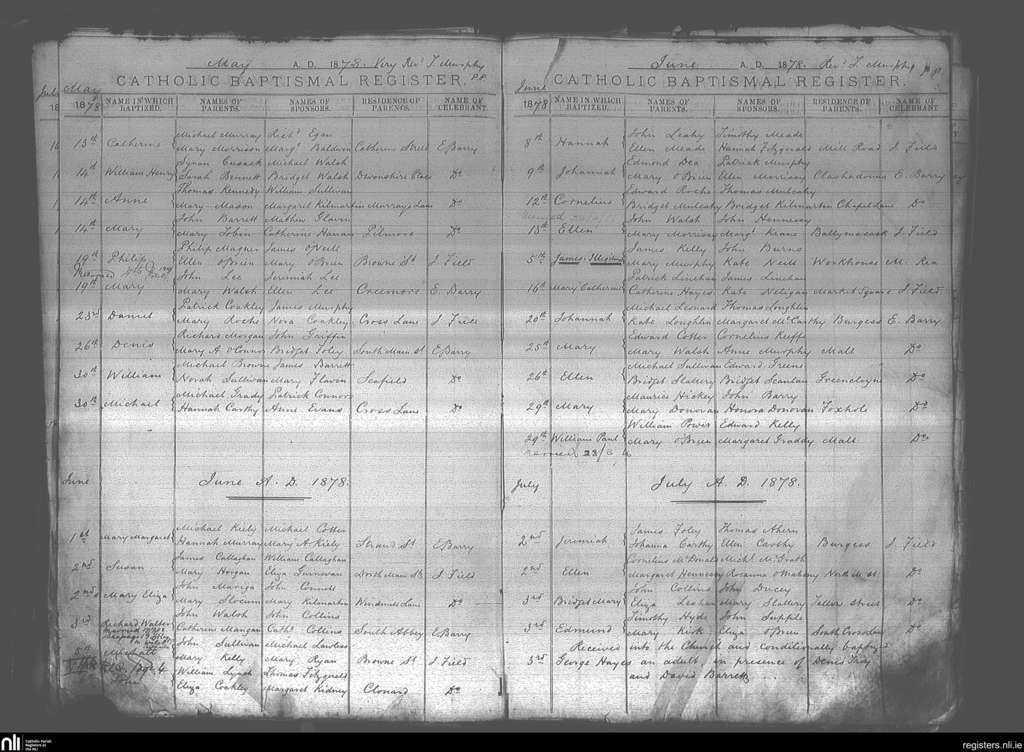 May A. D. 1878. Very Revd T. Murphy P.P.
CATHOLIC BAPTISMAL REGISTER.
May
1878
NAME IN WHICH BAPTIZED.
NAMES OF PARENTS.
NAMES OF SPONSORS.
RESIDENCE OF PARENTS.
NAME OF CELEBRANT.
Michael Murray Richd Egan
13th Catherine Mary Morrison Margt Baldwin Catherine Street E Barry
Cusack Michael Walsh
14th William Henry Sarah Bennett Bridget Walsh Devonshire Place Do
Thomas Kennedy William Sullivan
14th Anne Mary Mason Margaret Kilmartin Murrays Lane Do
John Barrett Mathew Glavin
14th Mary Mary Tobin Catherine Do
Philip Magner James O'Neill
19th Philip Ellen O'Brien Mary O'Brien Browne St J Field
John Lee Jeremiah Lee
19th Mary Mary Walsh Ellen Lee E. Barry
Patrick Coakley James Murphy
23rd Daniel Mary Roche Nora Coakley Cross Lane J Field
Richard Morgan John Griffin
26th Denis Mary A O'Connor Bridget Foley South Main St E Barry
Michael Browne James Barrett
30th William Norah Sullivan Mary Flavin Seafield Do
Michael Grady Patrick Connor
30th Michael Hannah Carthy Anne Evans Cross Lane Do
June
June A. D. 1878.
Michael Kiely Michael Cotter
1st Mary Margaret Hannah Murray Mary A Kiely Strand St E Barry
James Callaghan William Callaghan
2nd Susan Mary Horgan Eliza North Main St J Field
John John Connell
2nd Mary Eliza Mary Slocum Mary Kilmartin Windmill Lane Do
John Walsh John Collins
3rd Richard Walter Catherine Mangan Cath. Collins South Abbey E Barry
John Sullivan Michael Lawless
5th Mary Kelly Mary Ryan Browne St J Field
William Lynch Thomas Fitzgerald
Eliza Coakley Margaret Kidney Clonard Do
June A. D. 1878. Revd T. Murphy P.P.
CATHOLIC BAPTISMAL REGISTER.
June
1878
NAME IN WHICH BAPTIZED.
NAMES OF PARENTS.
NAMES OF SPONSORS.
RESIDENCE OF PARENTS.
NAME OF CELEBRANT.
John Leahy Timothy Meade
8th Hannah Ellen Meade Hannah Fitzgerald Mill Road J Field
Edmond Dea Patrick Murphy
9th Johannah Mary O'Brien Ellen Morrissey Clashadonna E. Barry
Edward Roche Thomas Mulcahy
12th Cornelius Bridget Mulcahy Bridget Kilmartin Chapel Lane Do
John Walsh John Hennessy
13th Ellen Mary Morrissey Margt Keane Ballymacask J Field
James Kelly John Burns
5th James Mary Murphy Kate Neill Workhouse M. Rea
Patrick Linehan James Linehan
16th Mary Catherine Catherine Hayes Kate Neligan Market Square J Field
Michael Leonard Thomas Loughlin
20th Johannah Kate Loughlin Margaret McCarthy Burgess E. Barry
Edward Cotter Cornelius Keeffe
25th Mary Mary Walsh Anne Murphy Mall Do
Michael Sullivan Edward Greene
26th Ellen Bridget Slattery Bridget Scanlan Greencloyne Do
Maurice Hickey John Barry
29th Mary Mary Donovan Honora Donovan Foxhole Do
William Power Edward Kelly
29th William Paul Mary O'Brien Margaret Graddy Mall Do
July
July A. D. 1878.
James Foley Thomas Ahern
2nd Jeremiah Johanna Carthy Ellen Carthy Burgess J. Field
Cornelius McDonald Michl McGrath
2nd Ellen Margaret Hennessy Rosanna O'Mahony North M. St Do
John Collins John Ducey
3rd Bridget Mary Eliza Leahan Mary Slattery Tallow Street Do
Timothy Hyde John Supple
3rd Edmund Mary Kirk Eliza O'Brien South Cross Lane Do
Received into the Church and conditionally baptized
3rd George Hayes an adult, in presence of Denis
and David Barrett
nli
Catholic Parish Registers at the NLI
registers.nli.ie